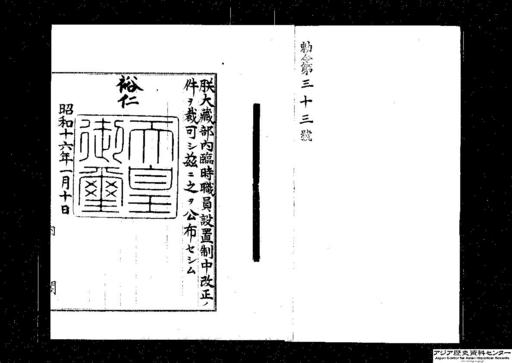 勅令第三十三號
朕大藏部內臨時職員設置制中改正ノ
件ヲ裁可シ茲ニ之ヲ公布セシム
裕仁
天皇御璽
昭和十六年一月十日
內閣
アジア歴史資料センター
Japan Center for Asian Historical Records